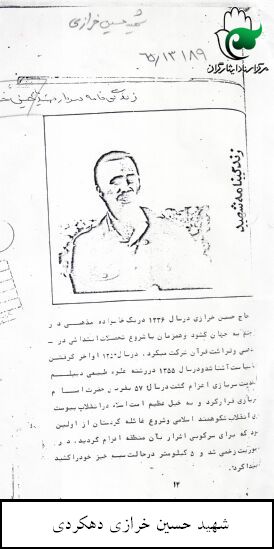 شهید حسین خرازی
۶۵/۱۳۱۸۹
مرکز اسناد ایثارگران
زندگی نامه سردار شهید
زندگینامه شهید
حاج حسین خرازی درسال ۱۳۳۶ دریک خانواده مذهبی در
به جهان گشود وهمزمان باشروع تحصیلات ابتدائی در
وقرائت قرآن شرکت میکرد، درسال اواخر گرفتن
آشنا شد ودرسال ۱۳۵۵ دررشته علوم طبیعی دیپلم
سربازی اعزام گشت درسال ۵۷ بفرمان حضرت امام
فرارکرد و به خیل عظیم امت اسلام درانقلاب پیوست
انقلاب شکوهمند اسلامی وشروع غائله کردستان از اولین
بود که برای سرکوبی اشرار بآن منطقه اعزام گردید، در
زخمی شد و ۵ کیلومتر درحالت سینه خیز خودراکشید
پیدا کرد.
۱۲
شهید حسین خرازی دهکردی